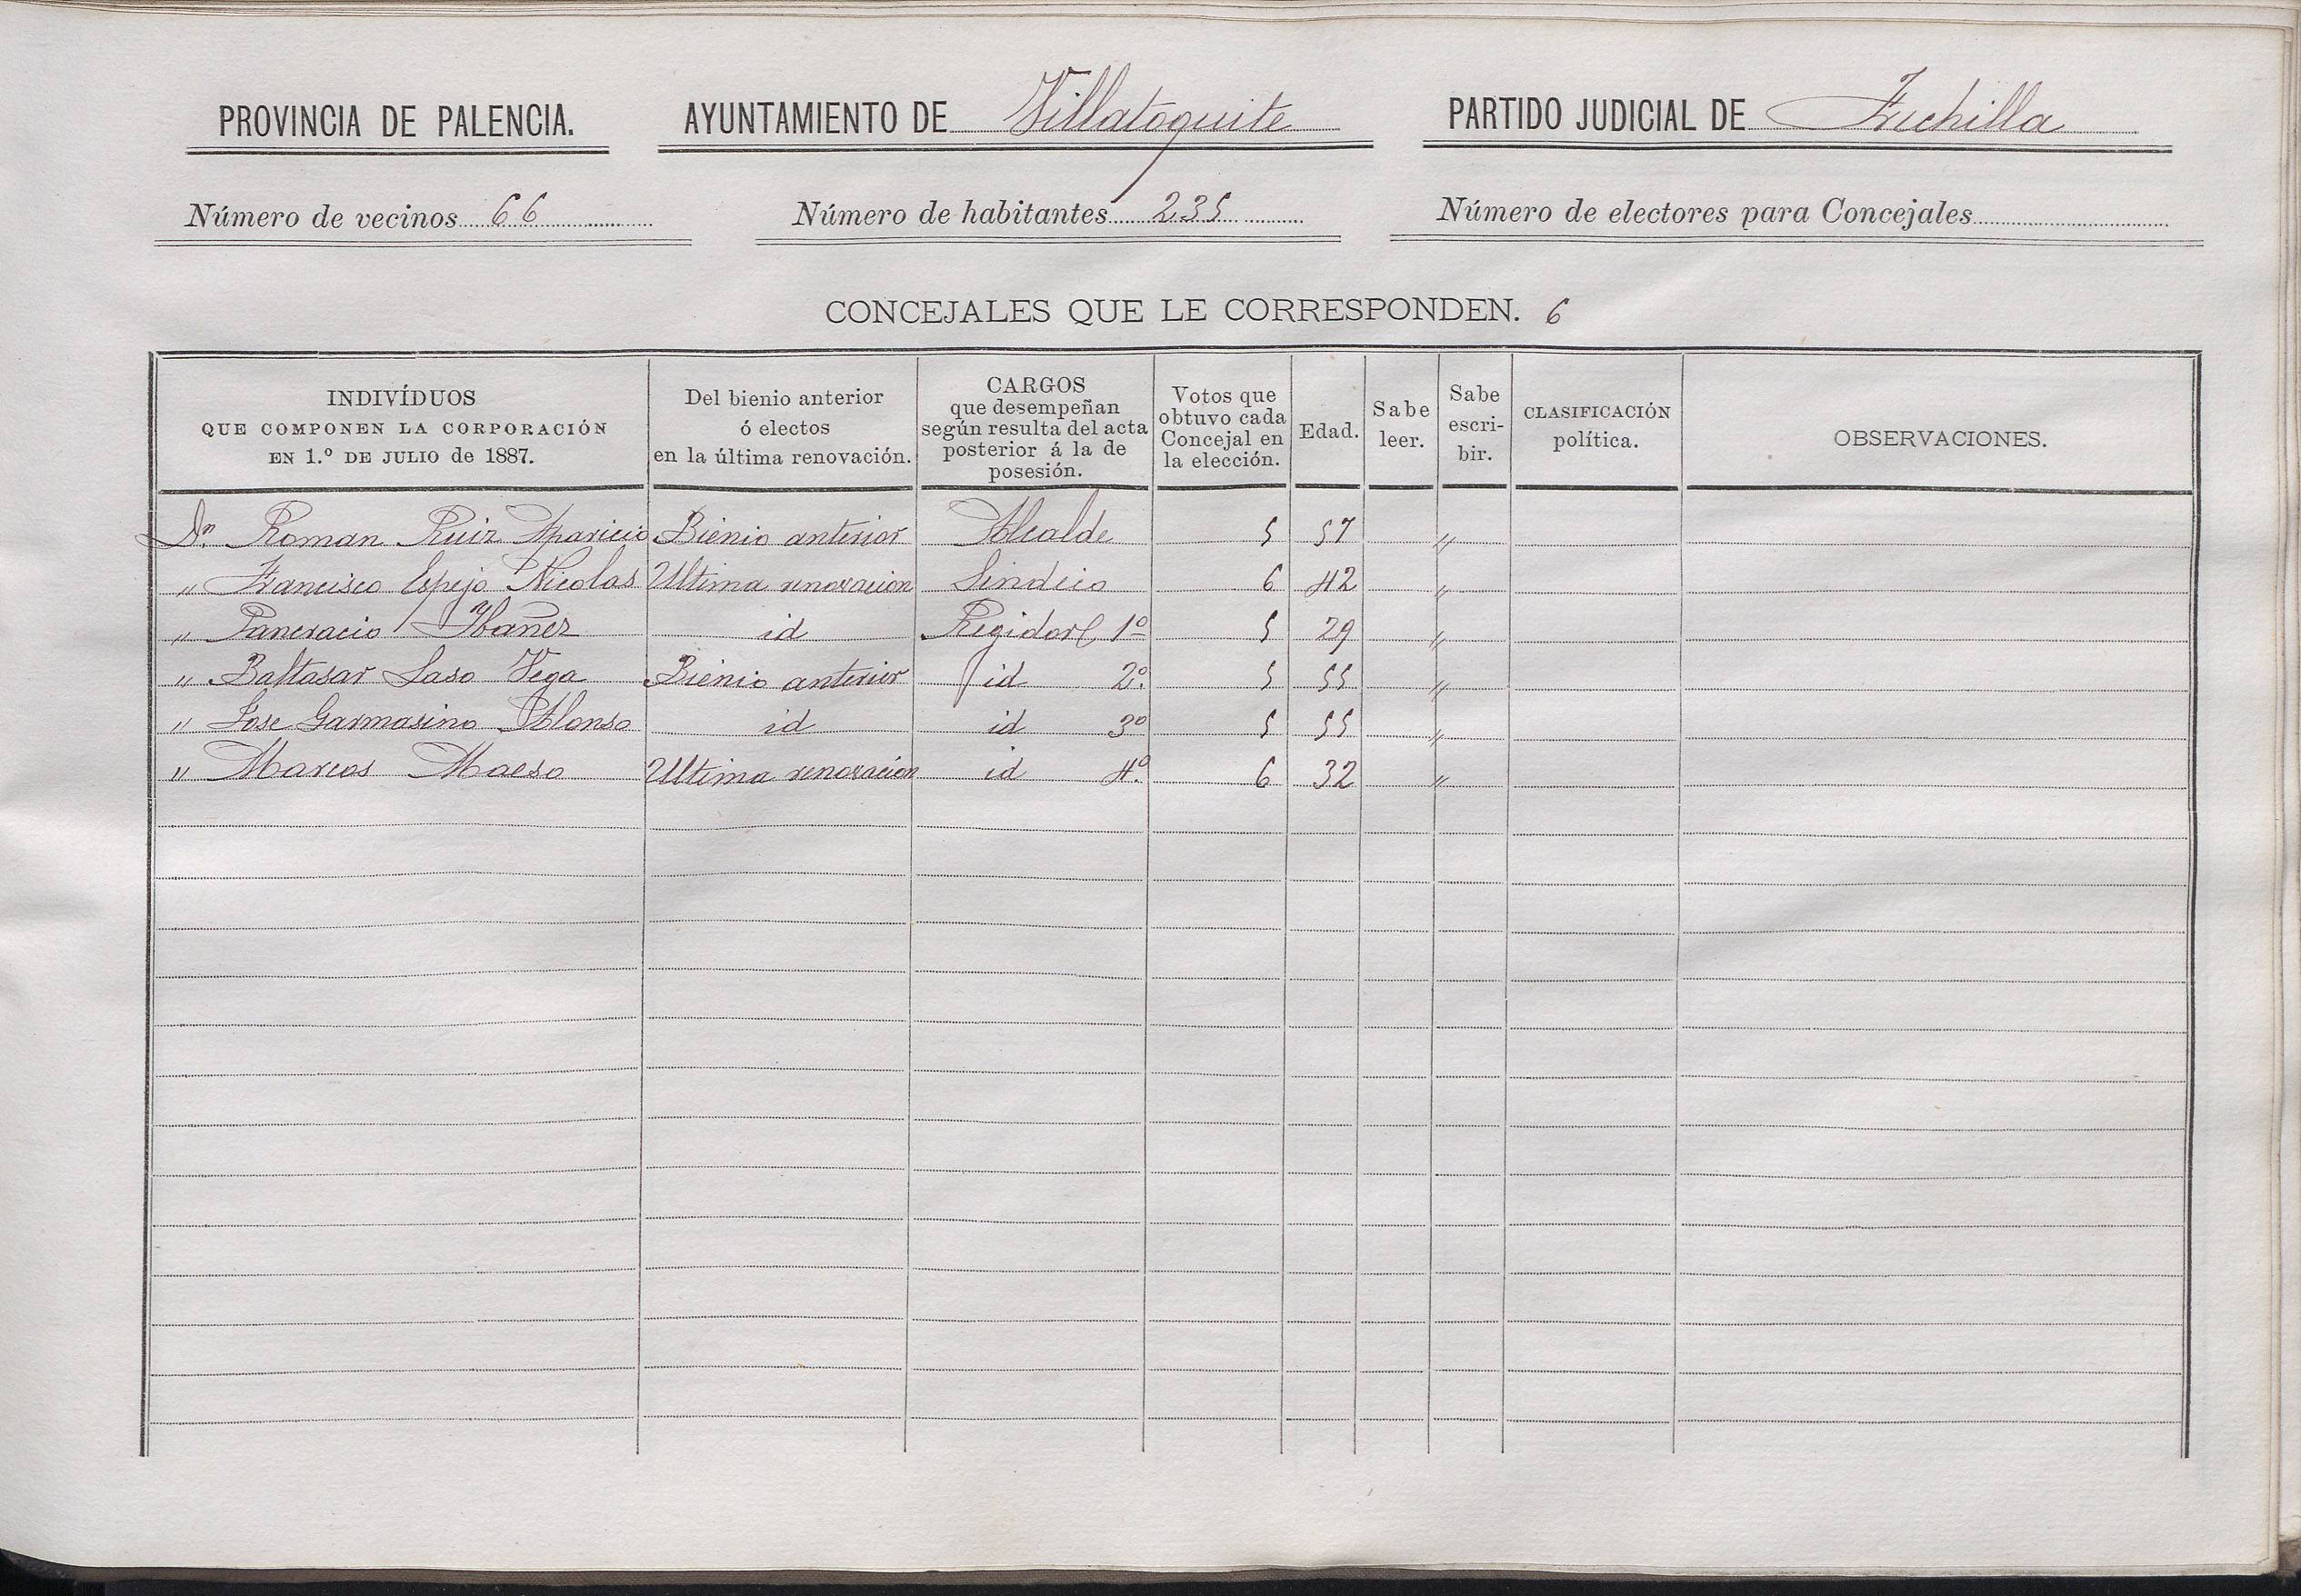 PROVINCIA DE PALENCIA. AYUNTAMIENTO DE Villatoquite PARTIDO JUDICIAL DE Frechilla
Número de vecinos 66 Número de habitantes 235 Número de electores para Concejales
CONCEJALES QUE LE CORRESPONDEN. 6
INDIVÍDUOS
QUE COMPONEN LA CORPORACIÓN
EN 1.º DE JULIO de 1887.
Del bienio anterior
ó electos
en la última renovación.
CARGOS
que desempeñan
según resulta del acta
posterior á la de
posesión.
Votos que
obtuvo cada
Concejal en
la elección.
Edad.
Sabe
leer.
Sabe
escri-
bir.
CLASIFICACIÓN
política.
OBSERVACIONES.
Dn Roman Ruiz Aparicio Bienio anterior Alcalde 5 57 "
" Francisco Espejo Nicolas Ultima renovacion Sindico 6 42 "
" Pancracio Ibañez id Regidor 1º 5 29 "
" Baltasar Laso Vega Bienio anterior id 2º 5 55 "
" Jose Garmasino Alonso id id 3º 5 55 "
" Marcos Maeso Ultima renovacion id 4º 6 32 "